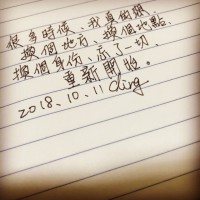 很多時候、我真的想
換個地方、換個地點、
換個身份、忘了一切、
重新開始。
2018.10.11 Cling